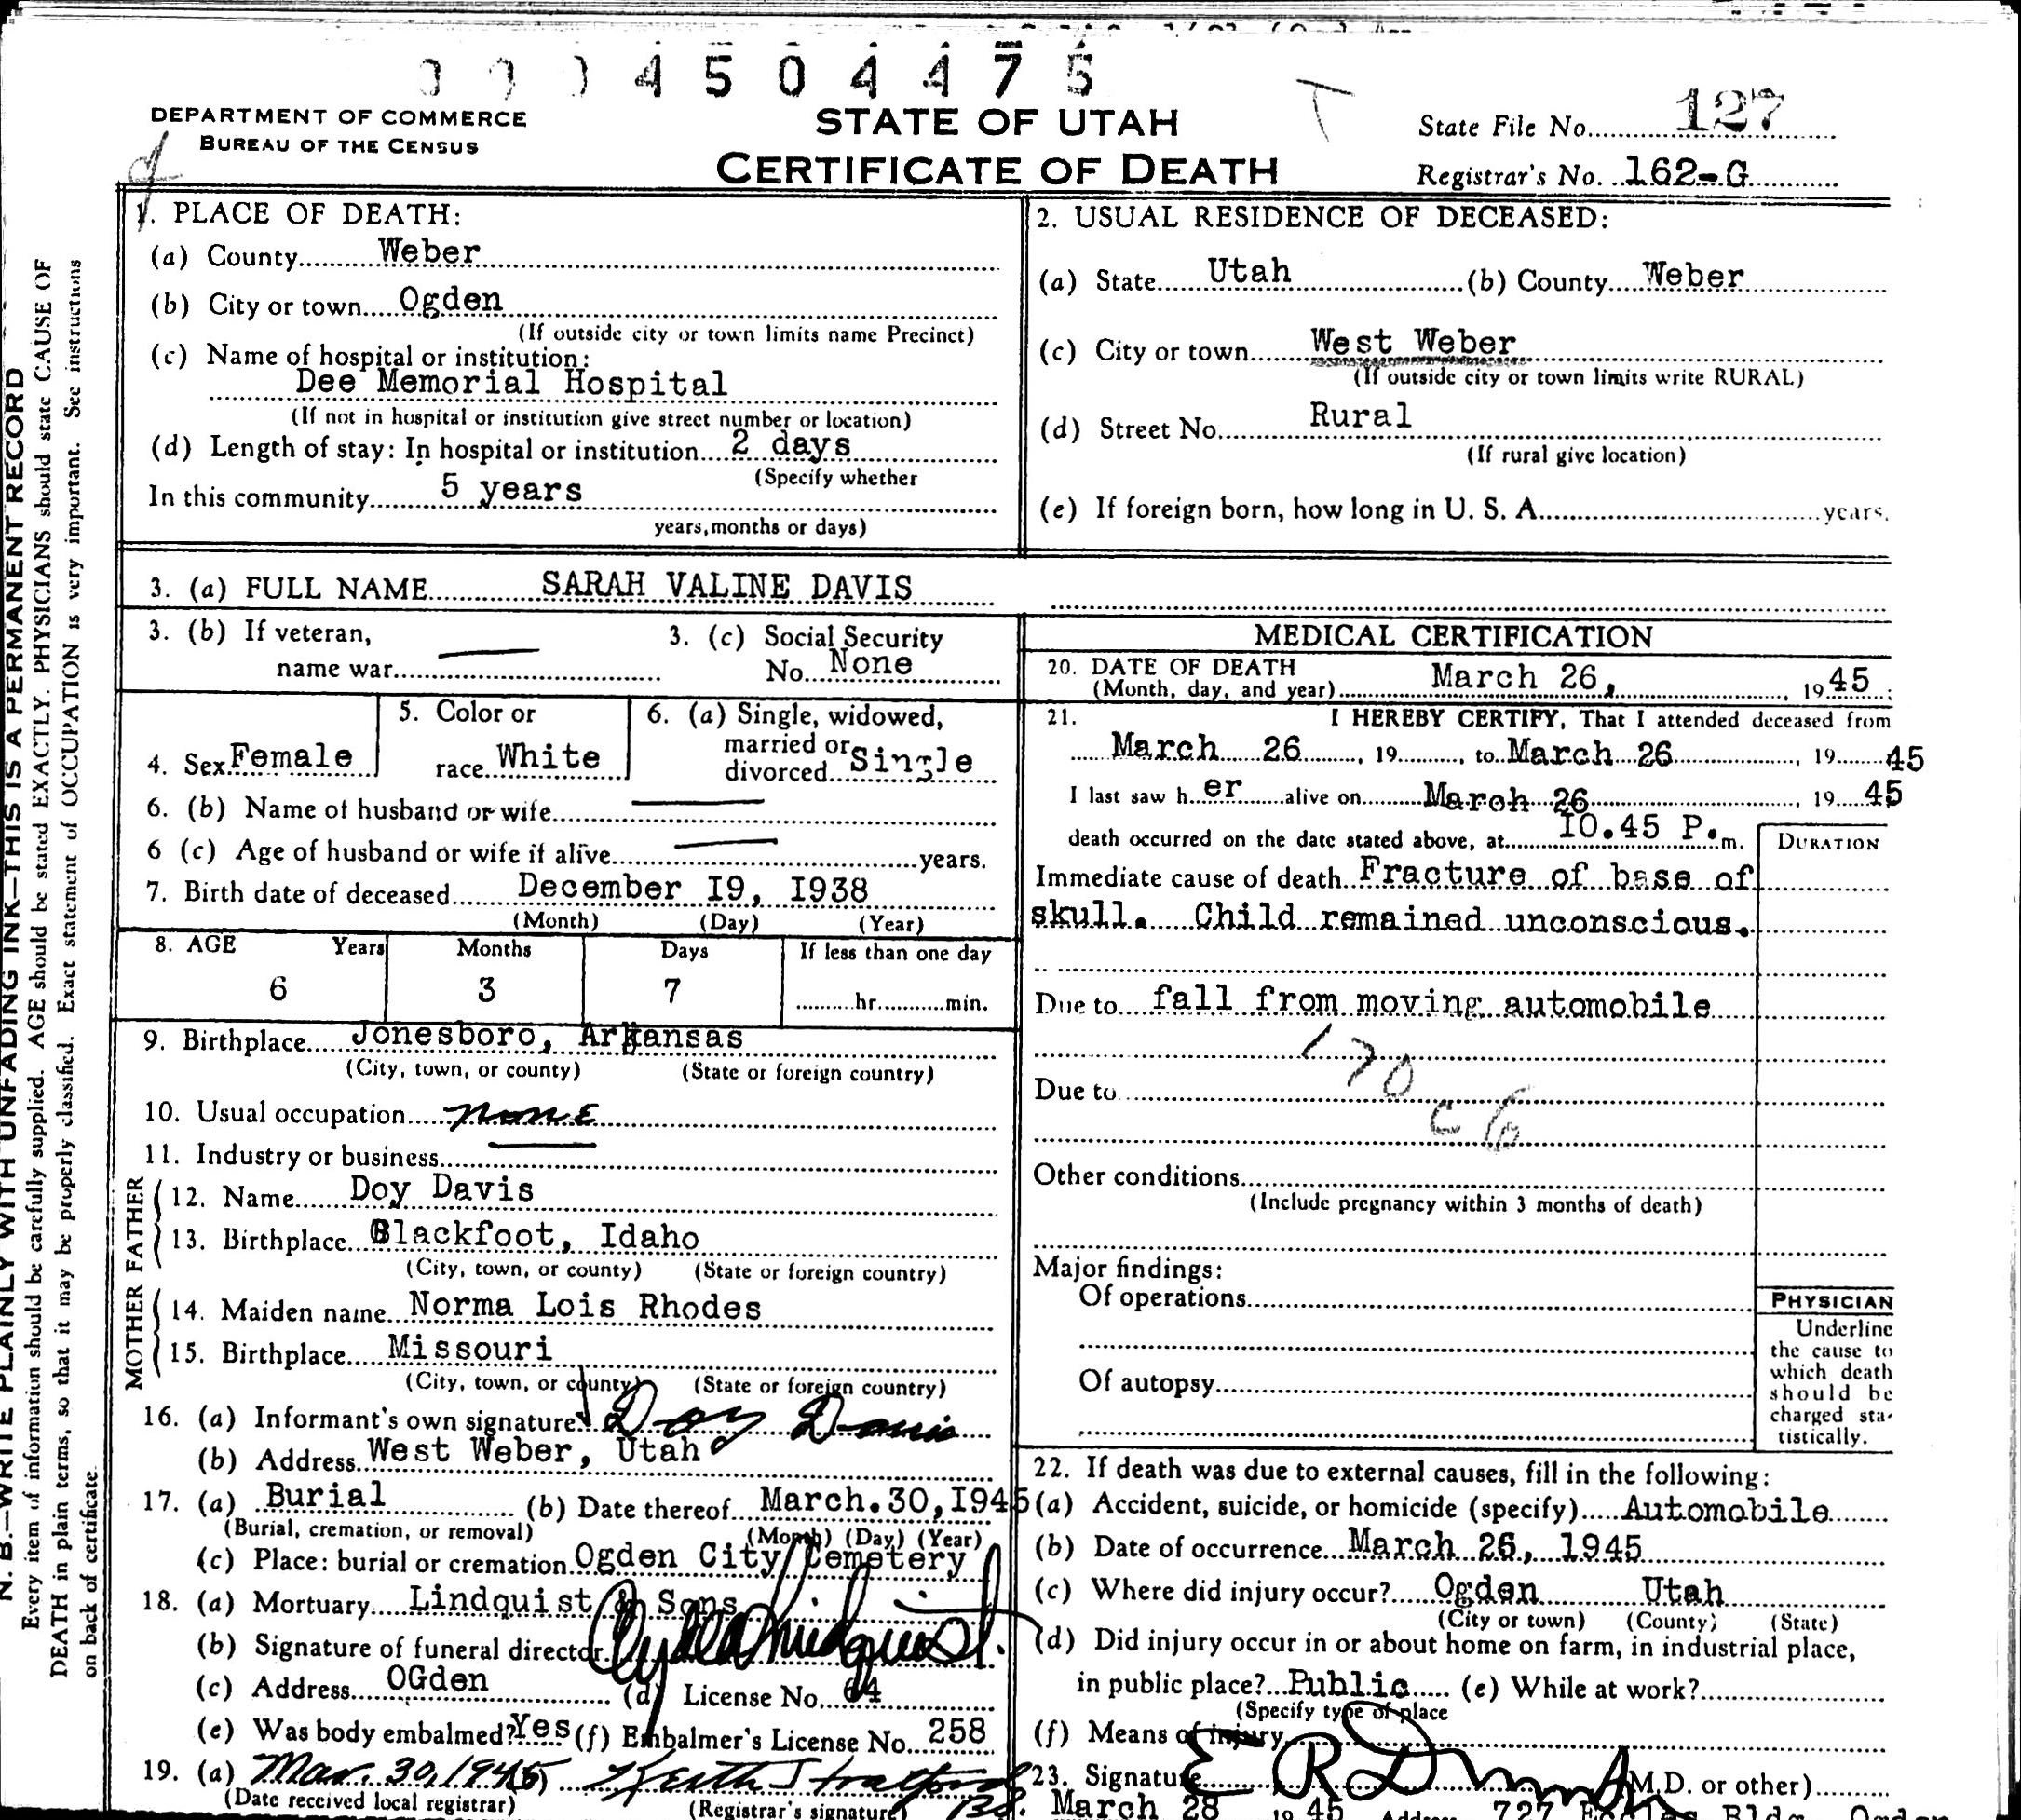 4 5 0 4 4 7 5
DEPARTMENT OF COMMERCE
BUREAU OF THE CENSUS
STATE OF UTAH
CERTIFICATE OF DEATH
State File No. 127
Registrar's No. 162-G
1. PLACE OF DEATH:
(a) County Weber
(b) City or town Ogden
(If outside city or town limits name Precinct)
(c) Name of hospital or institution:
Dee Memorial Hospital
(If not in hospital or institution give street number or location)
(d) Length of stay: In hospital or institution 2 days
(Specify whether
In this community 5 years
years, months or days)
2. USUAL RESIDENCE OF DECEASED:
(a) State Utah (b) County Weber
(c) City or town West Weber
(If outside city or town limits write RURAL)
(d) Street No. Rural
(If rural give location)
(e) If foreign born, how long in U. S. A. years.
3. (a) FULL NAME SARAH VALINE DAVIS
3. (b) If veteran,
name war
3. (c) Social Security
No. None
4. Sex Female
5. Color or
race White
6. (a) Single, widowed,
married or
divorced Single
6. (b) Name of husband or wife
6 (c) Age of husband or wife if alive years.
7. Birth date of deceased December I9, I938
(Month) (Day) (Year)
8. AGE Years Months Days If less than one day
6 3 7 hr. min.
9. Birthplace Jonesboro, Arkansas
(City, town, or county) (State or foreign country)
10. Usual occupation None
11. Industry or business
FATHER
12. Name Doy Davis
13. Birthplace Blackfoot, Idaho
(City, town, or county) (State or foreign country)
MOTHER
14. Maiden name Norma Lois Rhodes
15. Birthplace Missouri
(City, town, or county) (State or foreign country)
16. (a) Informant's own signature Doy Davis
(b) Address West Weber, Utah
17. (a) Burial (b) Date thereof March. 30, I945
(Burial, cremation, or removal) (Month) (Day) (Year)
(c) Place: burial or cremation Ogden City Cemetery
18. (a) Mortuary Lindquist & Sons
(b) Signature of funeral director Lindquist
(c) Address OGden (d) License No. 64
(e) Was body embalmed? Yes (f) Embalmer's License No. 258
19. (a) Mar. 30, 1945 Keith Stratford
(Date received local registrar) (Registrar's signature)
MEDICAL CERTIFICATION
20. DATE OF DEATH
(Month, day, and year) March 26, 1945
21. I HEREBY CERTIFY, That I attended deceased from
March 26, 19 , to March 26, 19 45
I last saw her alive on March 26, 19 45
death occurred on the date stated above, at I0.45 P. m.
DURATION
Immediate cause of death Fracture of base of
skull. Child remained unconscious.
Due to fall from moving automobile
170
Due to
c 6
Other conditions
(Include pregnancy within 3 months of death)
Major findings:
Of operations
Of autopsy
PHYSICIAN
Underline
the cause to
which death
should be
charged sta-
tistically.
22. If death was due to external causes, fill in the following:
(a) Accident, suicide, or homicide (specify) Automobile
(b) Date of occurrence March 26, 1945
(c) Where did injury occur? Ogden Utah
(City or town) (County) (State)
(d) Did injury occur in or about home on farm, in industrial place,
in public place? Public (e) While at work?
(Specify type of place
(f) Means of injury
23. Signature E R (M.D. or other)
March 28 19 45 Address 727 Bldg. Ogden
N. B.—WRITE PLAINLY WITH UNFADING INK—THIS IS A PERMANENT RECORD
Every item of information should be carefully supplied. AGE should be stated EXACTLY. PHYSICIANS should state CAUSE OF
DEATH in plain terms, so that it may be properly classified. Exact statement of OCCUPATION is very important. See instructions
on back of certificate.